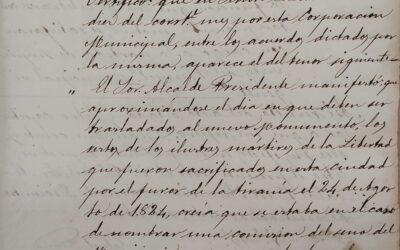 Certifico: que en
diez del corrte. mes por esta Corporacion
Municipal, entre los acuerdos dictados por
la misma, aparece el del tenor siguiente=
" El Sor. Alcalde Presidente manifestó, que
aproximándose el dia en que deben ser
trasladados al nuevo monumento, los
restos de los ilustres martires de la Libertad
que fueron sacrificados en esta ciudad
por el furor de la tirania el 24 de Agos
to de 1824, creia que se estaba en el caso
de nombrar una comision del seno del